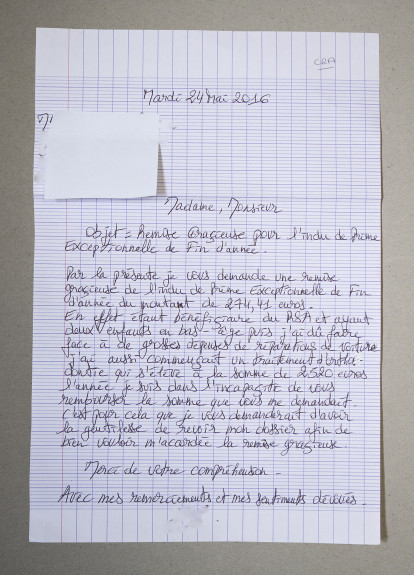 CRA
Mardi 24 Mai 2016
M
Madame, Monsieur
Objet = Remise Gracieuse pour l'indu de Prime
Exceptionnelle de Fin d'année.
Par la présente je vous demande une remise
gracieuse de l'indu de Prime Exceptionnelle de Fin
d'année du montant de 274,41 euros.
En effet étant bénéficiaire du RSA et ayant
deux enfants en bas-âge puis j'ai dû faire
face à de grosses dépenses de réparations de voiture
j'ai aussi commençait un traitement d'ortho-
dontie qui s'élève à la somme de 2520 euros
l'année je suis dans l'incapacité de vous
rembourser la somme que vous me demandait.
c'est pour cela que je vous demanderait d'avoir
la gentillesse de revoir mon dossier afin de
bien vouloir m'acordée la remise gracieuse.
Merci de votre compréhension -
Avec mes remerciements et mes sentiments dévoués.